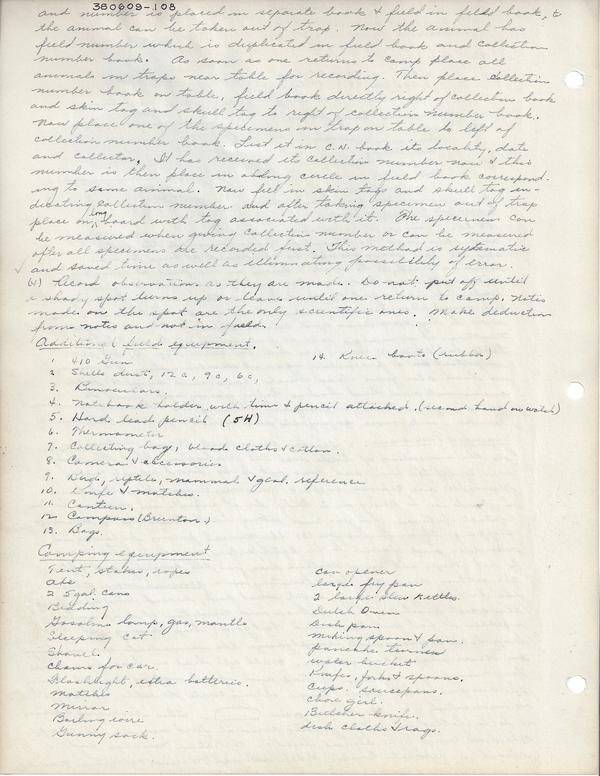 380609-108
and number is placed in separate book & field in field book, &
the animal can be taken out of trap. Now the animal has
field number which is duplicated in field book and collection
number book. As soon as one returns to camp place all
animals in traps near table for recording. Then place collection
number book on table, field book directly right of collection book
and skin tag and skull tag to right of collection number book.
Now place one of the specimens in trap on table to left of
collection number book. List it in C.N. book its locality, date
and collector. It has received its collection number now & this
number is then place in oblong circle in field book correspond-
ing to same animal. Now fill in skin tags and skull tag in-
dicating collection number. And after taking specimen out of trap
place on long board with tag associated with it. The specimens can
be measured when giving collection number or can be measured
after all specimens are recorded first. This method is systematic
and saved time as well as illuminating possibility of error.
Record observations as they are made. Do not put off until
a shady spot turns up or leave until one return to camp. Notes
made on the spot are the only scientific ones. Make deduction
from notes and not in field.
Additional field equipment.
1 410 Gun
14. Knee boots (rubber)
2 Shells dust, 12 c, 9 c, 6 c,
3. Binoculars.
4. Notebook holder with time & pencil attached. (second hand on watch)
5. Hard lead pencil (5H)
6. Thermometer
7. Collecting bag, blood cloths & cotton.
8. Camera & accessories
9. Bird, reptile, mammal & geol. reference
10. Knife & matches.
11. Canteen.
12 Compass (Brunton.)
13. Bags.
Camping equipment
Tent, stakes, ropes
can opener
Axe
large fry pan
2 5 gal. cans
2 large stew kettles.
Bedding
Dutch Oven
Gasoline lamp, gas, mantle
Dish pan
Sleeping cot
mixing spoon & pan.
Shovel
pancake turner
chains for car.
water bucket
Flashlight, extra batteries.
Knifes, forks & spoons.
matches
Cups, saucepans.
Mirror
chore girl.
Bailing wire
Butcher knife.
Gunny sack.
dish cloths & rags.